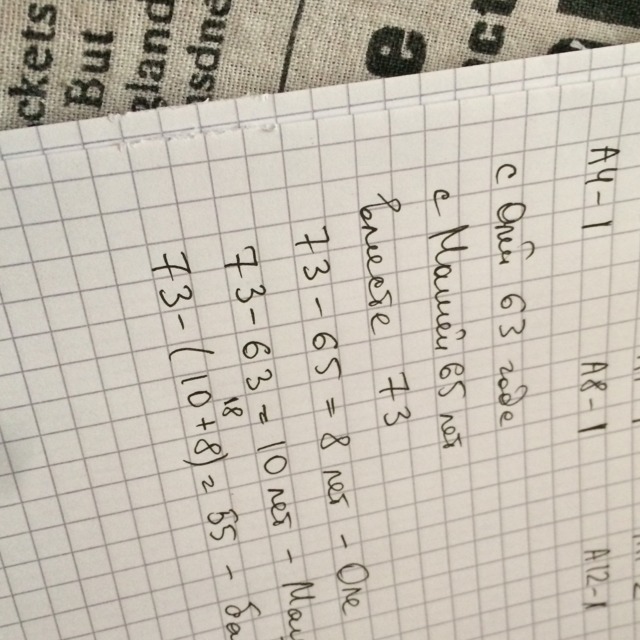 ckets
But
gland
e
ct
А4-1 А8-1 А12-1
с Олей 63 года
с Машей 65 лет
вместе 73
73 - 65 = 8 лет - Оле
73 - 63 = 10 лет - Маш
18
73 - (10+8) = 55 -